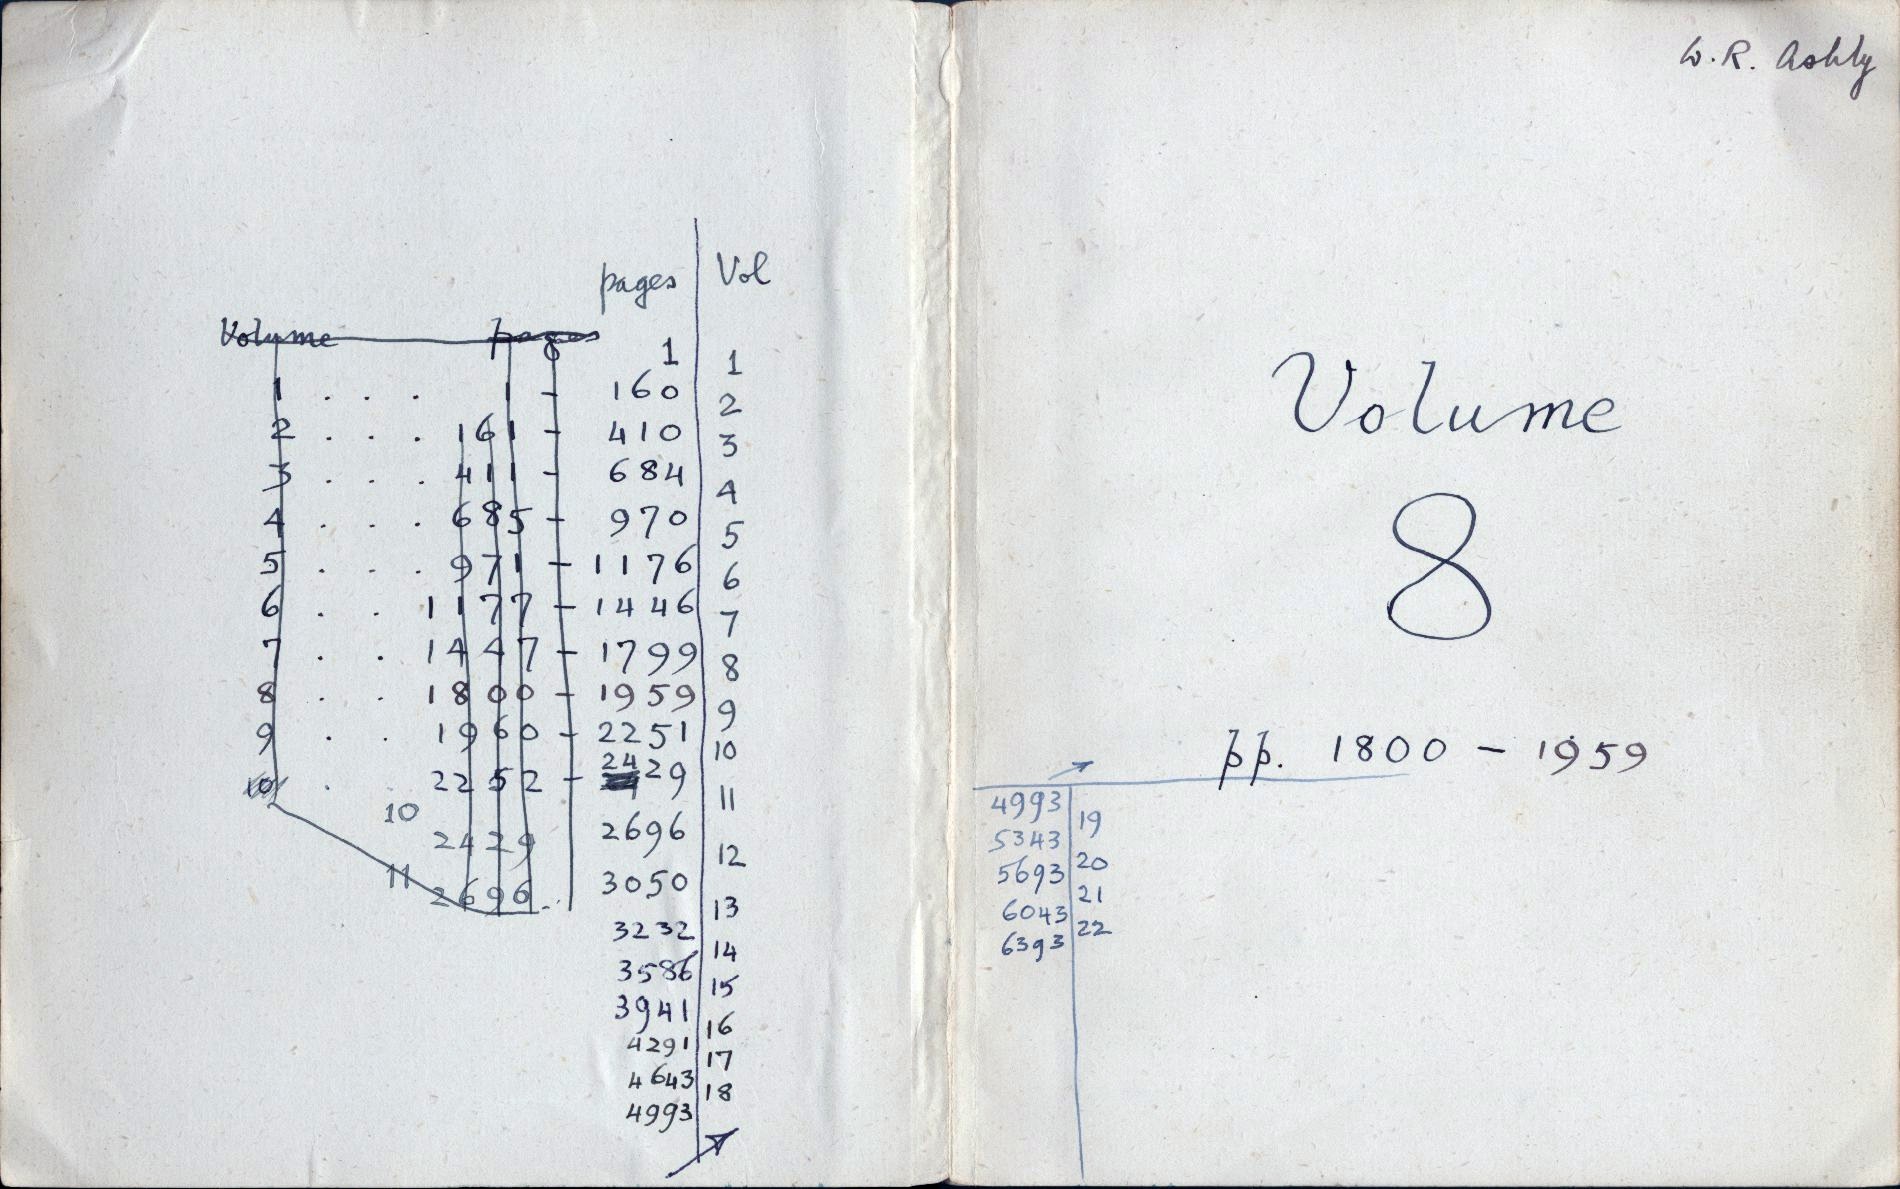 pages | Vol
Volume pages
1 | 1
1 . . . 1 - 160 | 2
2 . . . 161 - 410 | 3
3 . . . 411 - 684 | 4
4 . . . 685 - 970 | 5
5 . . . 971 - 1176 | 6
6 . . 1177 - 1446 | 7
7 . . 1447 - 1799 | 8
8 . . 1800 - 1959 | 9
9 . . 1960 - 2251 | 10
10 . 2252 - 2429 | 11
10 2429 2696 | 12
11 2696 .. 3050 | 13
3232 | 14
3586 | 15
3941 | 16
4291 | 17
4643 | 18
4993
W.R. Ashby
Volume
8
pp. 1800 - 1959
4993 | 19
5343 | 20
5693 | 21
6043 | 22
6393